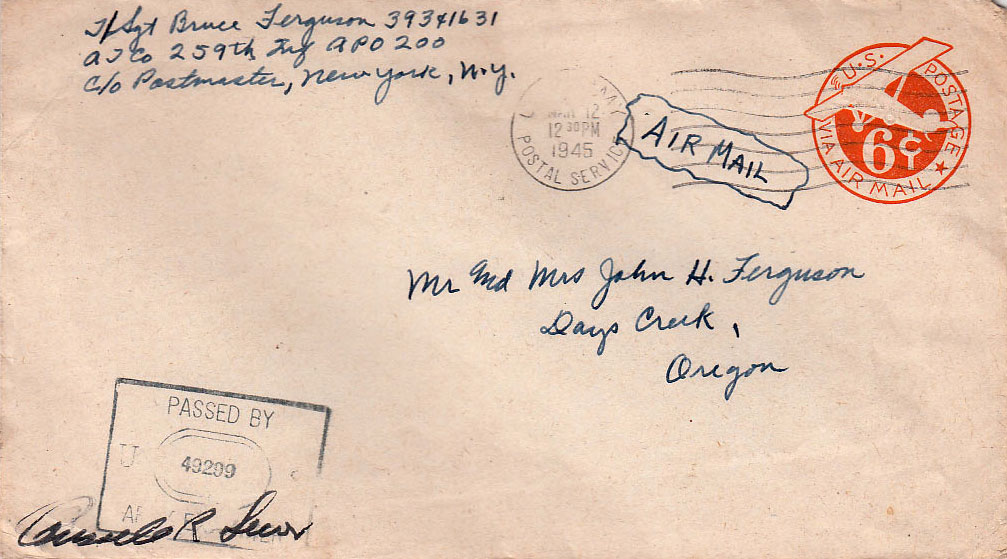 T/Sgt Bruce Ferguson 39341631
AT Co 259th Inf APO 200
C/o Postmaster, New York, N.Y.
12 30 PM
1945
POSTAL SERVICE
AIR MAIL
U.S. POSTAGE
6¢
VIA AIR MAIL
Mr and Mrs John H. Ferguson
Days Creek,
Oregon
PASSED BY
U S
49299
R